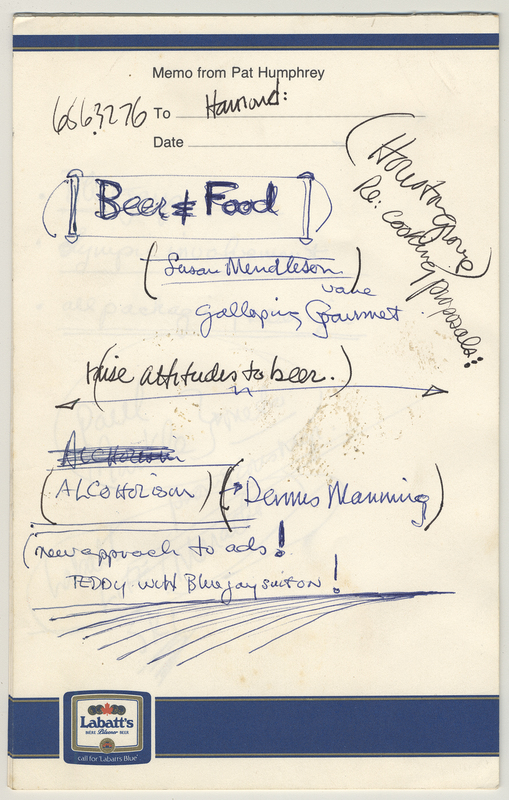 Memo from Pat Humphrey
6663276 To Hammond:
Date
(Houston grove)
Re: cooking proposals:
Beer & Food
(Susan Mendleson)
vanc
Galloping Gourmet
(raise attitudes to beer.)
Alcholism
(ALCOHOLISM) (→ Dennis Manning)
(new approach to ads!
TEDDY with Bluejay suit on!
Labatt's
BIÈRE Pilsener BEER
"call for 'Labatt's Blue'"